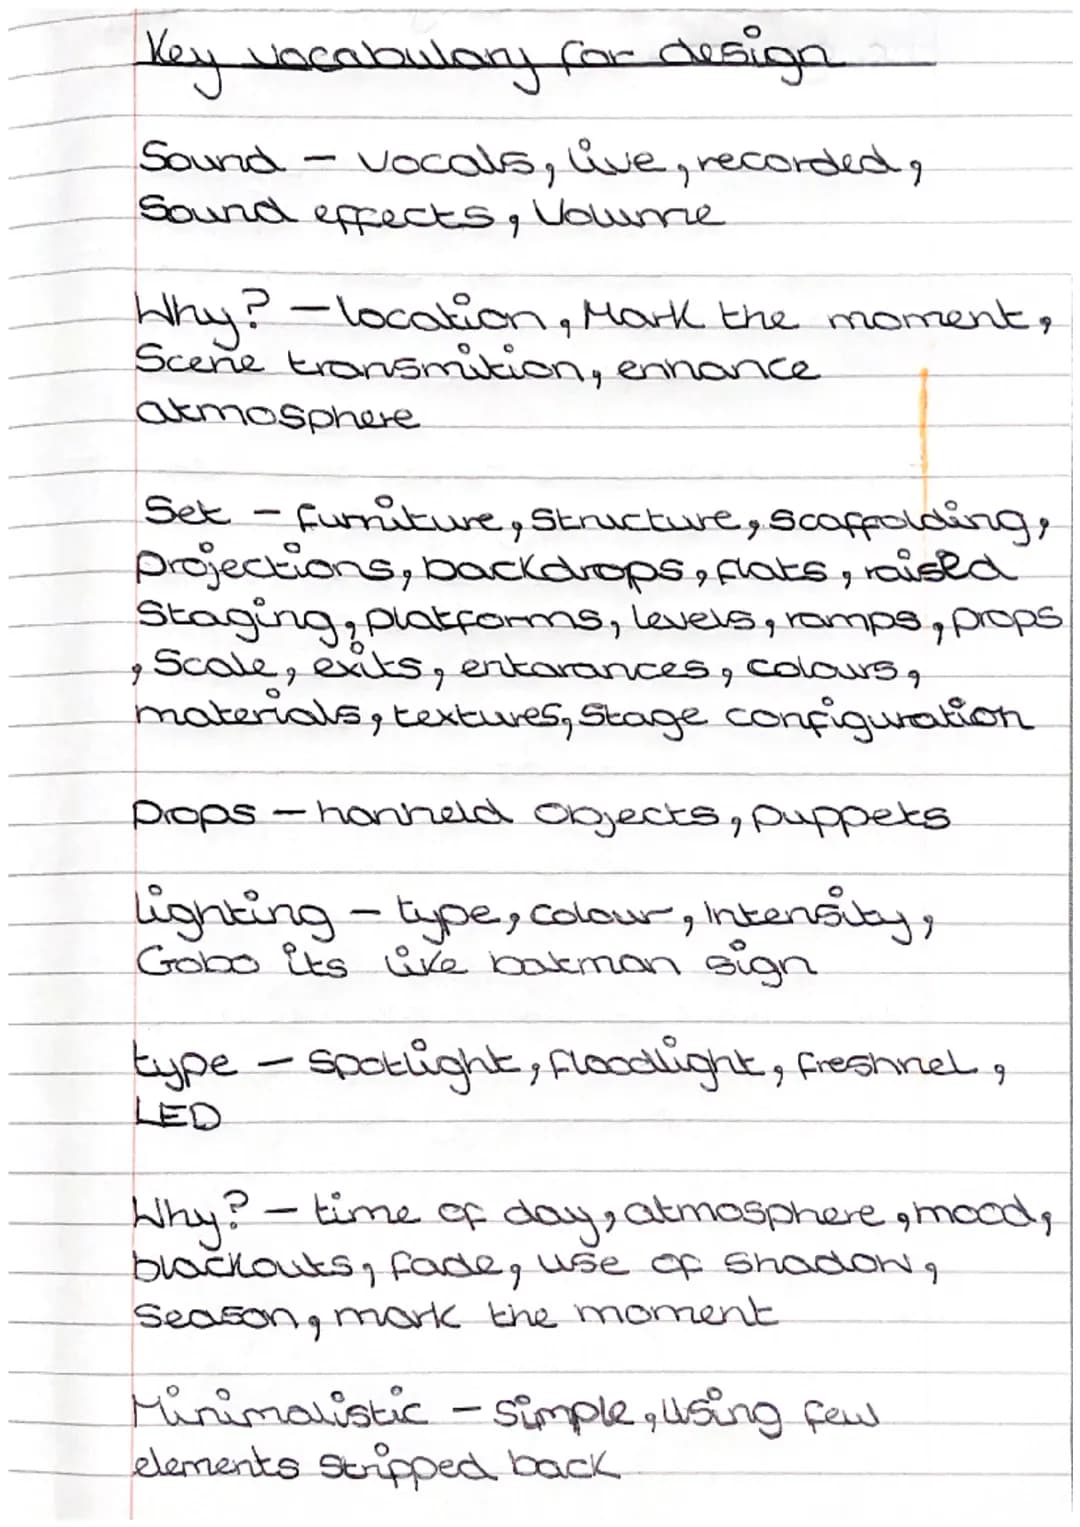 Key vocabulary for design
Sound - vocals, live, recorded,
Sound effects, Volume
Why? - location, Mark the moment,
Scene transmition, ennance
atmosphere
Set - furniture, Structure, scaffolding,
Projections, backdrops, flats, raised
Staging, platforms, levels, ramps, props
, Scale, exits, entarances, colours,
materials, textures, Stage configuration
Props - hanheld Objects, puppets
lighting - type, colour, Intensity,
Gobo its like batman sign
type - Spotlight, floodlight, freshnel,
LED
Why? - time of day, atmosphere, mood,
blackouts, fade, use of shadow,
Season, mark the moment
Minimalistic - Simple, Using few
elements stripped back